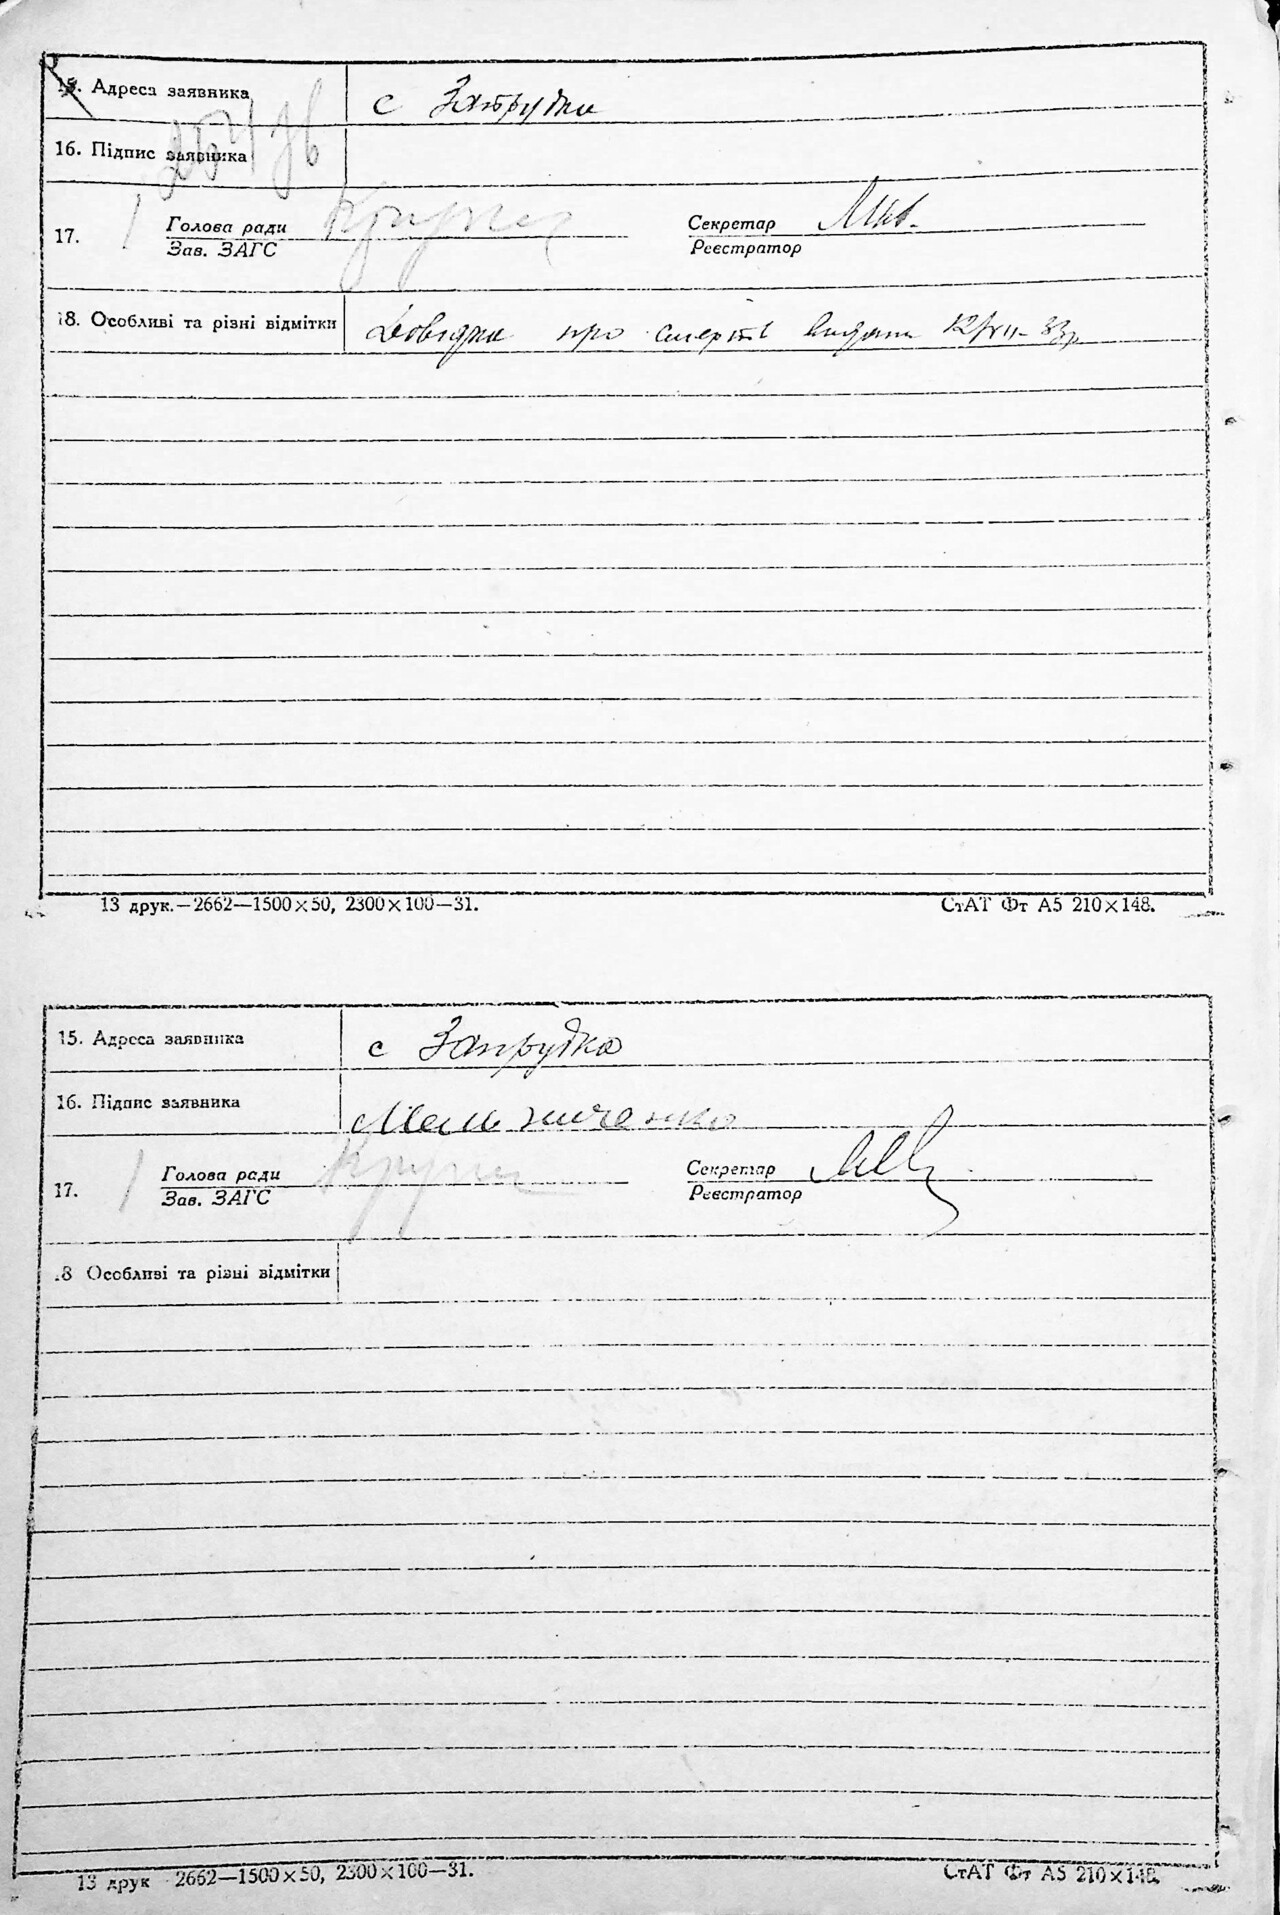 15. Адреса заявника с Запрудка
16. Підпис заявника
17. Голова ради Секретар
Зав. ЗАГС Реєстратор
18. Особливі та різні відмітки Довідка про смерть видана 12/VII-33р
13 друк.—2662—1500×50, 2300×100—31. СтАТ Фт А5 210×148.
15. Адреса заявника с Запрудка
16. Підпис заявника Мельниченко
17. Голова ради Секретар
Зав. ЗАГС Реєстратор
18 Особливі та різні відмітки
13 друк 2662—1500×50, 2300×100—31. СтАТ Фт А5 210×148.